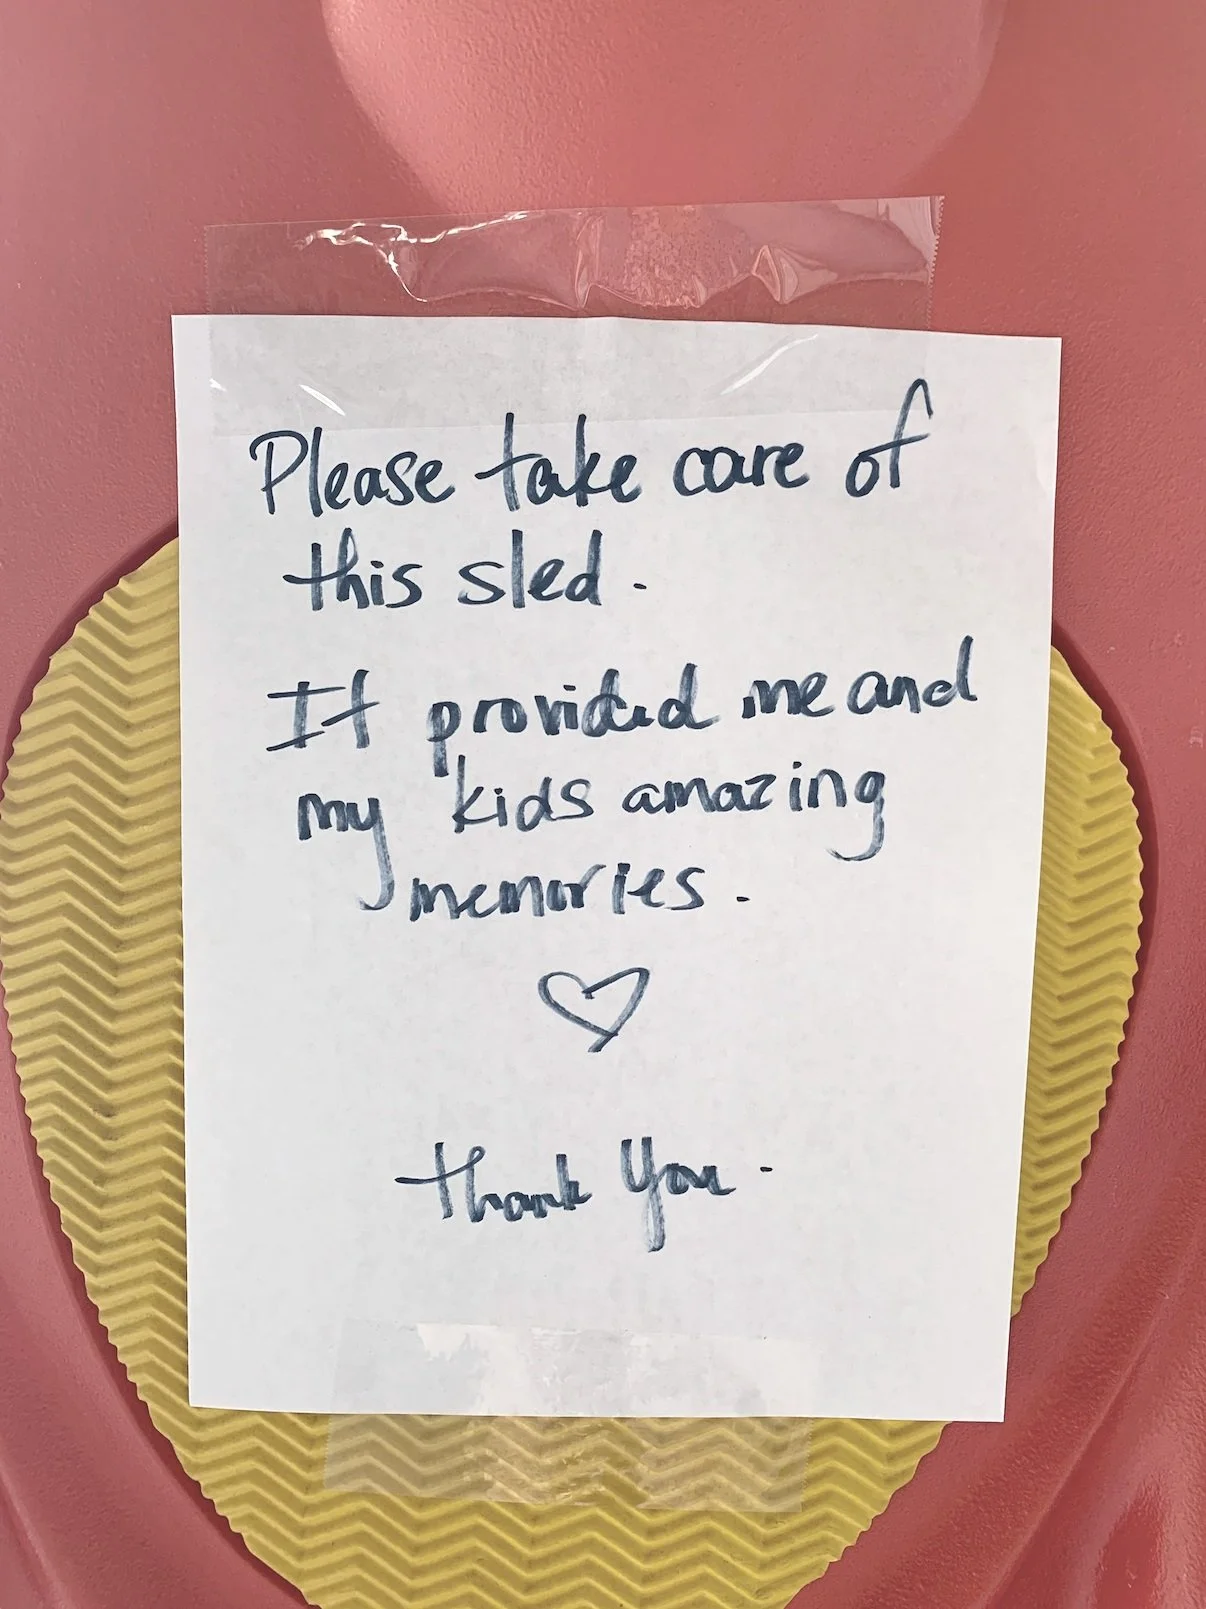 Please take care of
this sled.
It provided me and
my kids amazing
memories.
Thank You.